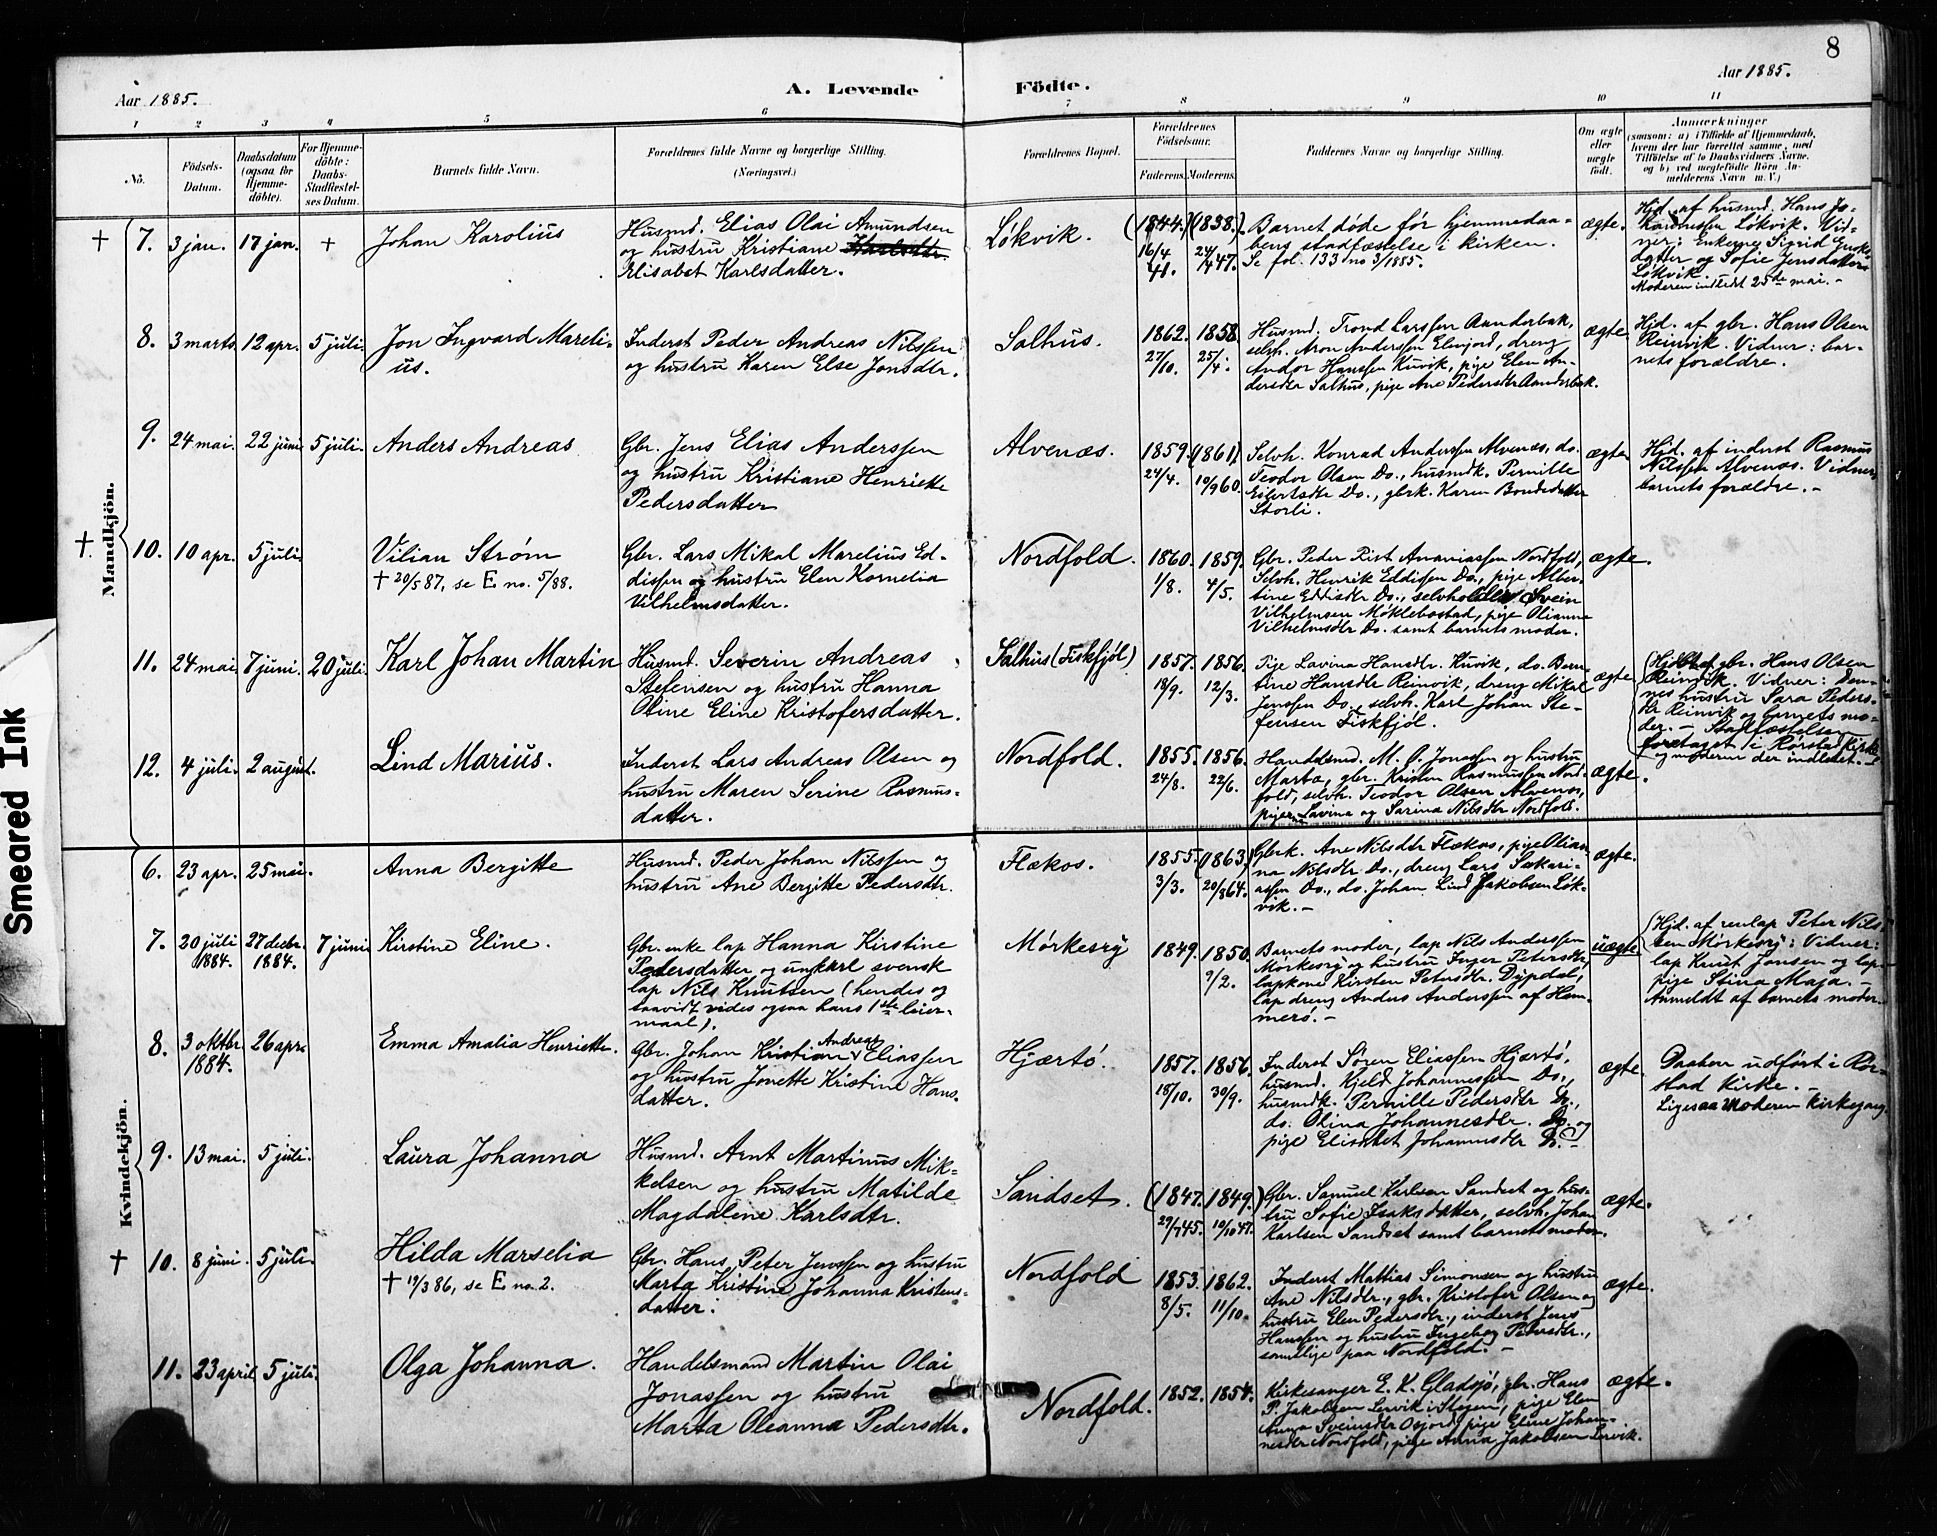 8
Aar 1885.
A. Levende
Födte.
Aar 1885.
1 2 3 4 5 6 7 8 9 10 11
No.
Födsels-Datum.
Daabsdatum (ogsaa for Hjemme-döbte).
For Hjemme-döbte: Daabs-Stadfæstel-ses Datum.
Barnets fulde Navn.
Forældrenes fulde Navne og borgerlige Stilling. (Næringsvei.)
Forældrenes Bopæl.
Forældrenes Födselsaar.
Faderens. Moderens.
Faddernes Navne og borgerlige Stilling.
Om ægte eller uægte födt.
Anmærkninger
(saasom: a) i Tilfælde af Hjemmedaab,
hvem der har forrettet samme, med
Tilföielse af to Daabsvidners Navne,
og b) ved uægtefödte Börn An-
melderens Navn m. V.)
Mandkjön.
† 7. 3 jan. 17 jan. †
Johan Karolius
Husmd. Elias Olai Amundsen
og hustru Kristiane Karlsdtr.
Elisabet Karlsdatter.
Løkvik.
(1844.) (1838.)
16/4 41. 24/4 47.
Barnet døde før hjemmedaa-
bens stadfæstelse i kirken.
Se fol. 133 no 3/1885.
ægte.
Hjd. af husmd. Hans Jo-
hannessen Løkvik. Vid-
ner: Enkerne Sigrid Enoks
datter og Sofie Jensdatter
Løkvik.
Moderen indledt 25de mai.-
8. 3 marts. 12 apr. 5 juli.
Jon Ingvard Mareli-
us.
Inderst Peder Andreas Nilssen
og hustru Karen Else Jonsdtr.
Salhus.
1862. 1858.
27/10. 25/4.
Husmd. Trond Larssen Aanderbak,
selvh. Aron Anderssen Elvejord, dreng
Andor Hanssen Kuvik, pige Elen An-
dersdtr Salhus, pige Ane Pedersdtr Aanderbak.
ægte.
Hjd. af gbr. Hans Olsen
Reinvik. Vidner: bar-
nets forældre.
9. 24 mai. 22 juni. 5 juli.
Anders Andreas
Gbr. Jens Elias Anderssen
og hustru Kristiane Henriette
Pedersdatter
Alvenæs.
1859. (1861)
24/4. 10/9 60.
Selvh. Konrad Anderssen Alvenæs, do.
Teodor Olsen Do., husmdk. Pernille
Eilertsdtr Do., gbrk. Karen Bondesdatter
Storli.
ægte
Hjd. af inderst Rasmus
Nilssen Alvenæs. Vidner,
barnets forældre.-
† 10. 10 apr. 5 juli.
Vilian Strøm
† 20/5 87, se E no. 5/88.
Gbr. Lars Mikal Marelius Ed-
dissen og hustru Elen Kornelia
Vilhelmsdatter.
Nordfold.
1860. 1859.
1/8. 4/5.
Gbr. Peder Rist Ananiassen Nordfold,
Selvh. Henrik Eddissen Do., pige Alber-
tine Eddisdtr Do., selvholder Svein
Vilhelmsen Møklebostad, pige Olianna
Vilhelmsdtr Do. samt barnets moder.
ægte.
11. 24 mai 7 juni. 20 juli.
Karl Johan Martin
Husmd. Severin Andreas
Stefensen og hustru Hanna
Oline Eline Kristofersdatter.
Salhus (Fiskfjøl)
1857. 1856.
18/9. 12/3.
Pige Lavina Hansdtr. Kuvik, do. Bern-
tine Hansdtr Reinvik, dreng Mikal
Jenssen Do., selvh. Karl Johan Ste-
fensen Fiskfjøl.
ægte
(Hjdbt af gbr. Hans Olsen
Reinvik. Vidner: Den-
nes hustru Sara Peders-
dtr Reinvik og barnets mo-
der.- Stadfæstelsen
foretaget i Rørstad kirke
og moderen der indledet.-
12. 4 juli. 2 august.
Lind Marius.
Inderst Lars Andreas Olsen og
hustru Maren Serine Rasmus-
datter.
Nordfold.
1855. 1856.
24/8. 22/6.
Handelsmd. M. O. Jonassen og hustru
Marta, gbr. Kristen Rasmussen Nord-
fold, selvh. Teodor Olsen Alvenes,
piger Lavina og Sarina Nilsdtr Nordfold.
ægte.
Kvindekjön.
6. 23 apr. 25 mai.
Anna Bergitte
Husmd. Peder Johan Nilssen og
hustru Ane Bergitte Pedersdtr.
Flækos.
1855. (1863)
3/3. 20/8 64.
Gbrk. Ane Nilsdtr Flækos, pige Olian-
na Nilsdtr Do., dreng Lars Sakari-
assen Do., do. Johan Lind Jakobsen Løk-
vik.-
ægte.
7. 20 juli 1884. 27 decbr. 1884. 7 juni
Kirstine Eline.
Gbr. enke lap Hanna Kirstine
Pedersdatter og ungkarl svensk
lap Nils Knutsen (hendes og
saavidt vides ogsaa hans 1ste leier-
maal).
Mørkesvij
1849. 1850.
9/2.
Barnets moder, lap Nils Anderssen
Mørkesvij og hustru Inger Petersdtr,
lapkone Kirsten Petersdtr. Dypdal,
lap dreng Anders Anderssen af Ham-
merö.-
uægte
(Hjd. af renlap Peter Nils-
sen Mørkesvij: Vidner:
lap Knut Jonsen og lap-
pige Stina Maja.-
Anmeldt af barnets moder.
8. 3 oktbr. 1884. 26 apr.
Emma Amalia Henriette.
Gbr. Johan Kristian Andreas Eliassen
og hustru Jonette Kristine Hans-
datter.
Hjærtö.
1857. 1856.
18/10. 30/9.
Inderst Sören Eliassen Hjærtö,
husmd. Kjeld Johannessen Do.,
husmdk. Pernille Pedersdtr Do.,
do. Olina Johannesdtr. Do. og
pige Elisabet Johannesdtr Do.
ægte.
Daaben udført i Rør-
stad kirke.-
Ligesaa Moderen kirkegang.
9. 13 mai. 5 juli.
Laura Johanna
Husmd. Arnt Martinus Mik-
kelsen og hustru Matilde
Magdalene Karlsdtr.
Sandset.
(1847. 1849.)
29/7 45. 10/10 47.
Gbr. Samuel Karlsen Sandset og hus-
tru Sofie Isaksdatter, selvh. Johan
Karlsen Sandset samt barnets moder.
ægte.
† 10. 8 juni. 5 juli.
Hilda Marselia
† 19/3 86, se E no. 2.
Gbr. Hans Peter Jenssen og hustru
Marta Kristine Johanna Kristens-
datter.
Nordfold
1853. 1862.
8/5. 11/10.
Inderst Mattias Simonsen og hustru
Ane Nilsdtr., gbr. Kristofer Olsen og
hustru Elen Pedersdtr., inderst Jens
Hanssen og hustru Ingeborg Petersdtr.,
samtlige paa Nordfold.-
ægte.
11. 23 april 5 juli.
Olga Johanna.
Handelsmand Martin Olai
Jonassen og hustru
Marta Oleanna Pedersdtr.
Nordfold.
1852. 1854.
Kirkesanger E. K. Gladsjö, gbr. Hans
P. Jakobsen Lervik i Stegen, pige Elen
Anna Sveinsdtr Osjord, pige Eline Johan-
nesdtr Nordfold, pige Anna Jakobsen Lervik.
ægte.
Smeared Ink